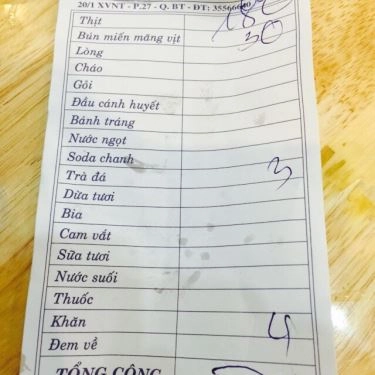 20/1 XVNT - P.27 - Q. BT - ĐT: 35566640
Thịt
Bún miến măng vịt 30
Lòng
Cháo
Gỏi
Đầu cánh huyết
Bánh tráng
Nước ngọt
Soda chanh
Trà đá 3
Dừa tươi
Bia
Cam vắt
Sữa tươi
Nước suối
Thuốc
Khăn 4
Đem về
TỔNG CỘNG